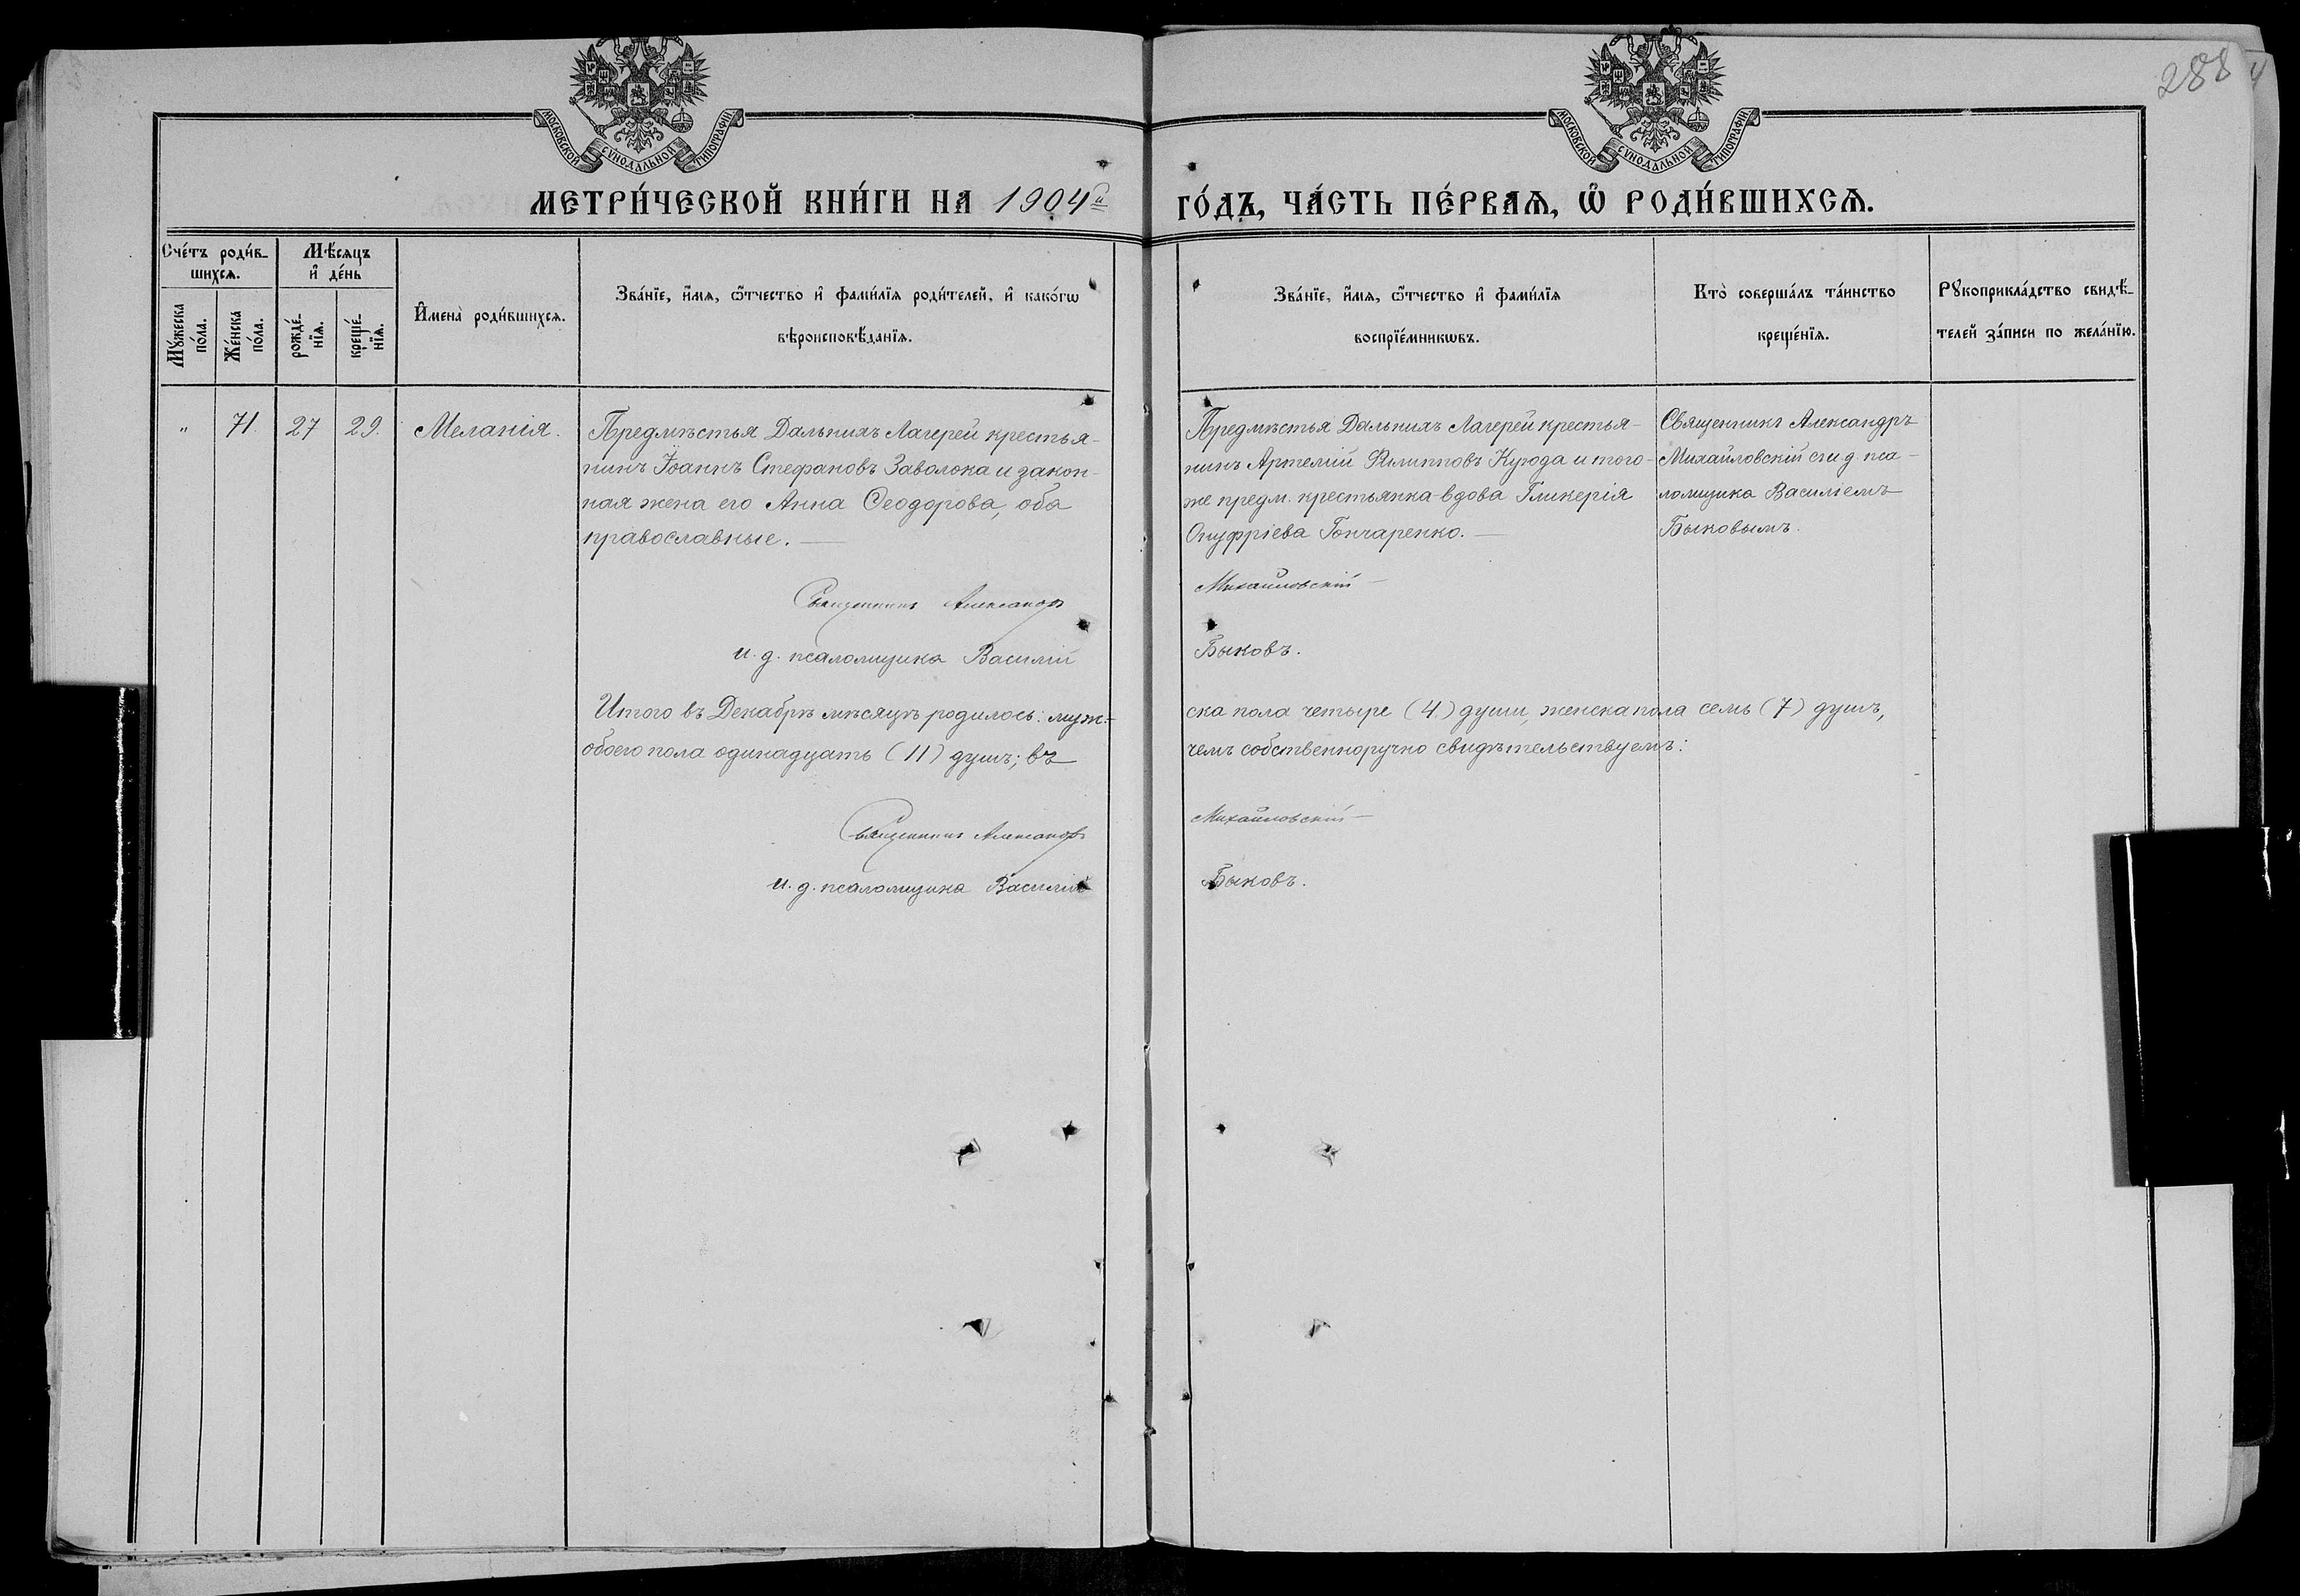 288
4
МОСКОВСКОЙ СѴНОДАЛЬНОЙ ТИПОГРАФІИ
МОСКОВСКОЙ СѴНОДАЛЬНОЙ ТИПОГРАФІИ
МЕТРИ́ЧЕСКОЙ КНИ́ГИ НА 1904й ГО́ДЪ, ЧА́СТЬ ПЕ́РВАѦ, Ѽ РОДИ́ВШИХСѦ.
Сче́тъ роди́в-
шихсѧ.
Мꙋ́жеска по́ла.
Же́нска по́ла.
Мѣ́сѧцъ
и҆ де́нь
рожде́-
нїѧ.
креще́-
нїѧ.
И҆мена̀ роди́вшихсѧ.
Зва́нїе, и҆́мѧ, ѻ҆́тчество и҆ фами́лїѧ роди́телей, и҆ како́гѡ
вѣроисповѣ́данїѧ.
Зва́нїе, и҆́мѧ, ѻ҆́тчество и҆ фами́лїѧ
воспрїе́мникѡвъ.
Кто̀ соверша́лъ та́инство
креще́нїѧ.
Рꙋкоприкла́дство свидѣ́-
телей за́писи по жела́нїю.
" 71. 27 29. Меланія.
Предмѣстья Дальнихъ Лагерей крестья-
нинъ Іоаннъ Стефановъ Заволока и закон-
ная жена его Анна Ѳеодорова, оба
православные.
Предмѣстья Дальнихъ Лагерей крестья-
нинъ Артемій Филипповъ Курода и того-
же предм. крестьянка-вдова Гликерія
Онуфріева Гончаренко.
Священникъ Александръ
Михайловскій съ и.д. пса-
ломщика Василіемъ
Быковымъ.
Священникъ Александръ Михайловскій
и. д. псаломщика Василій Быковъ.
Итого въ Декабрѣ мѣсяцѣ родилось: муже- ска пола четыре (4) души, женска пола семь (7) душъ,
обоего пола одинадцать (11) душъ; въ чемъ собственноручно свидѣтельствуемъ:
Священникъ Александръ Михайловскій
и. д. псаломщика Василій Быковъ.